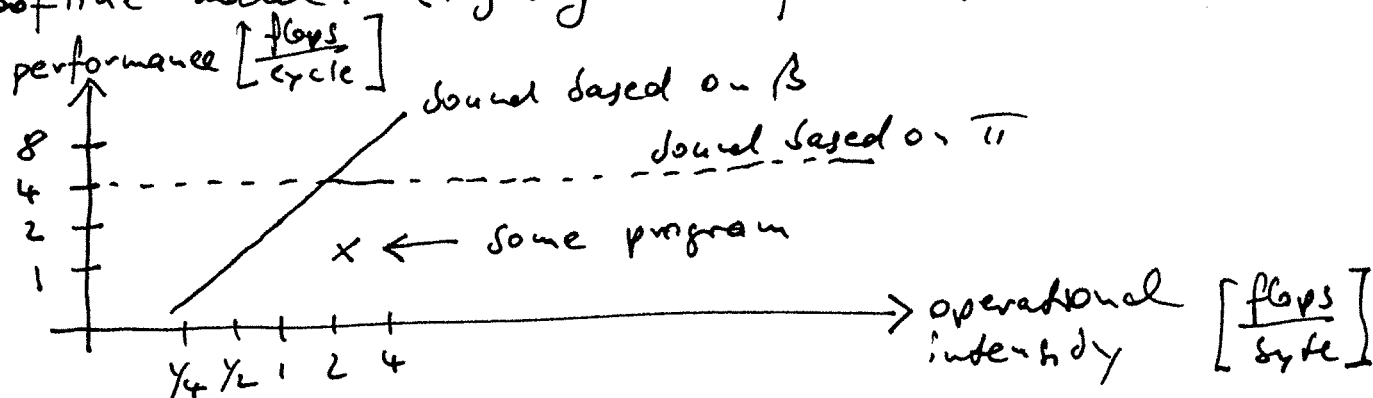 performance [flops/cycle]
bound based on β
8
bound based on π
4
2
x ← some program
1
operational intensity [flops/byte]
1/4 1/2 1 2 4